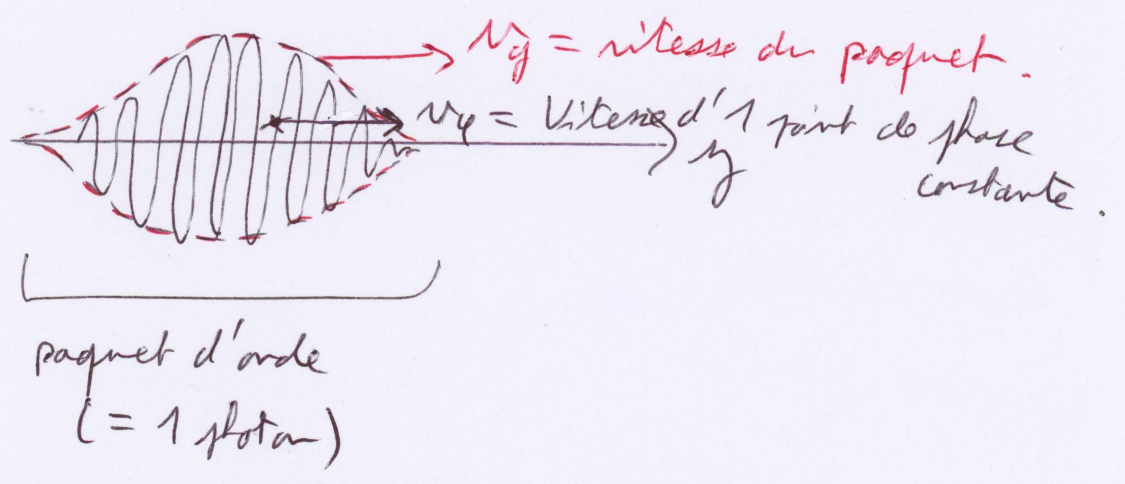 vg = vitesse du paquet.
vφ = Vitesse d'1 point de phase constante.
y
paquet d'onde
(= 1 photon)